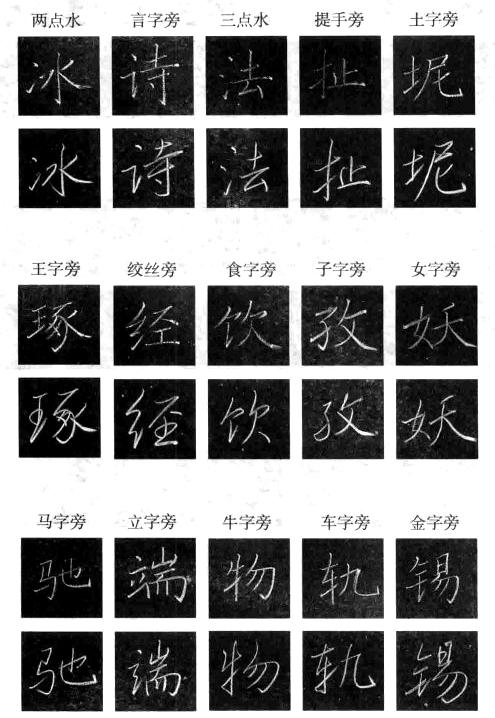 两点水 言字旁 三点水 提手旁 土字旁
冰 诗 法 扯 坭
冰 诗 法 扯 坭
王字旁 绞丝旁 食字旁 子字旁 女字旁
琢 经 饮 孜 妖
琢 经 饮 孜 妖
马字旁 立字旁 牛字旁 车字旁 金字旁
驰 端 物 轨 锡
驰 端 物 轨 锡